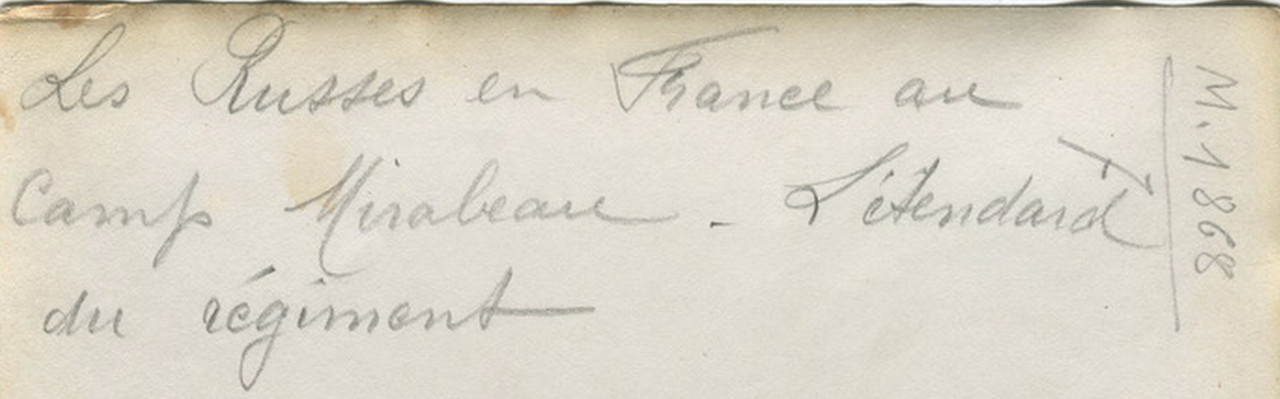 Les Russes en France au
Camp Mirabeau - L'étendard
du régiment
M. 1868